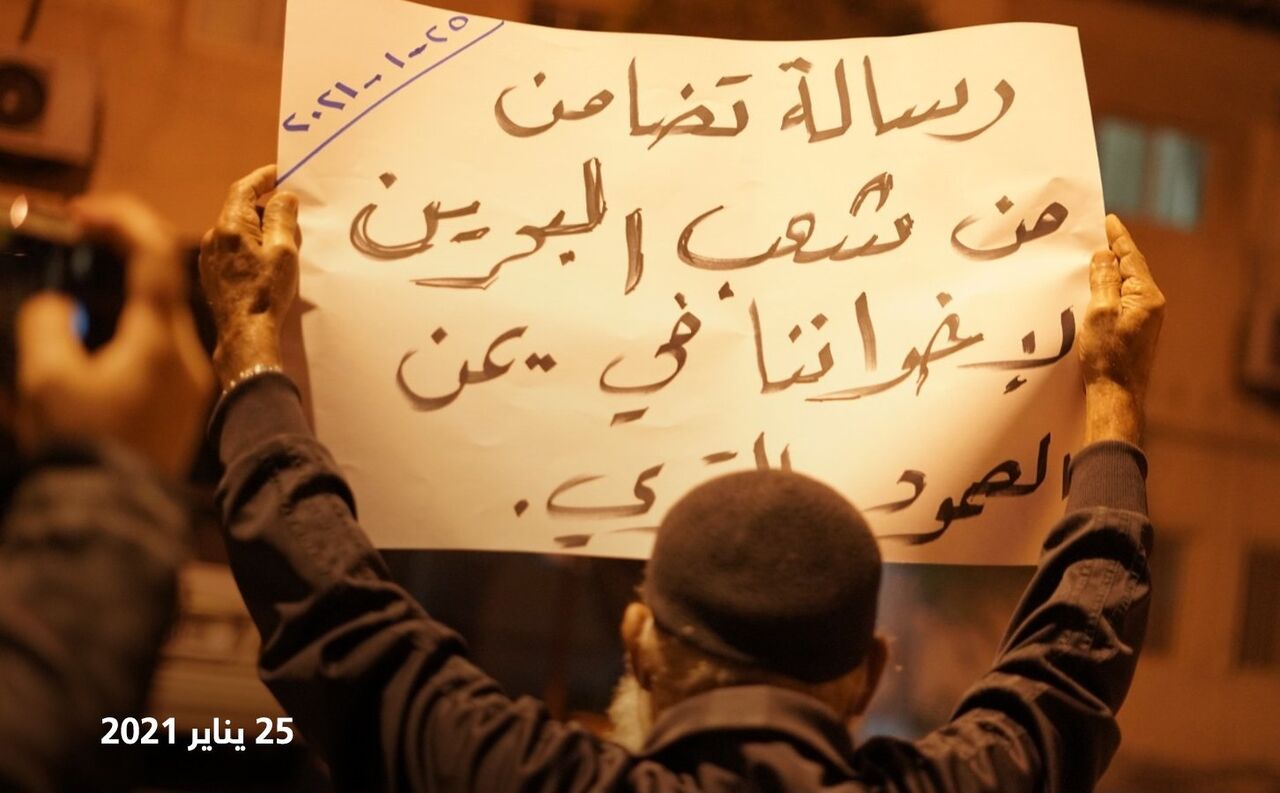 ٢٥-١-٢٠٢١
رسالة تضامن
من شعب البحرين
لإخواننا في يمن
الصمود
25 يناير 2021